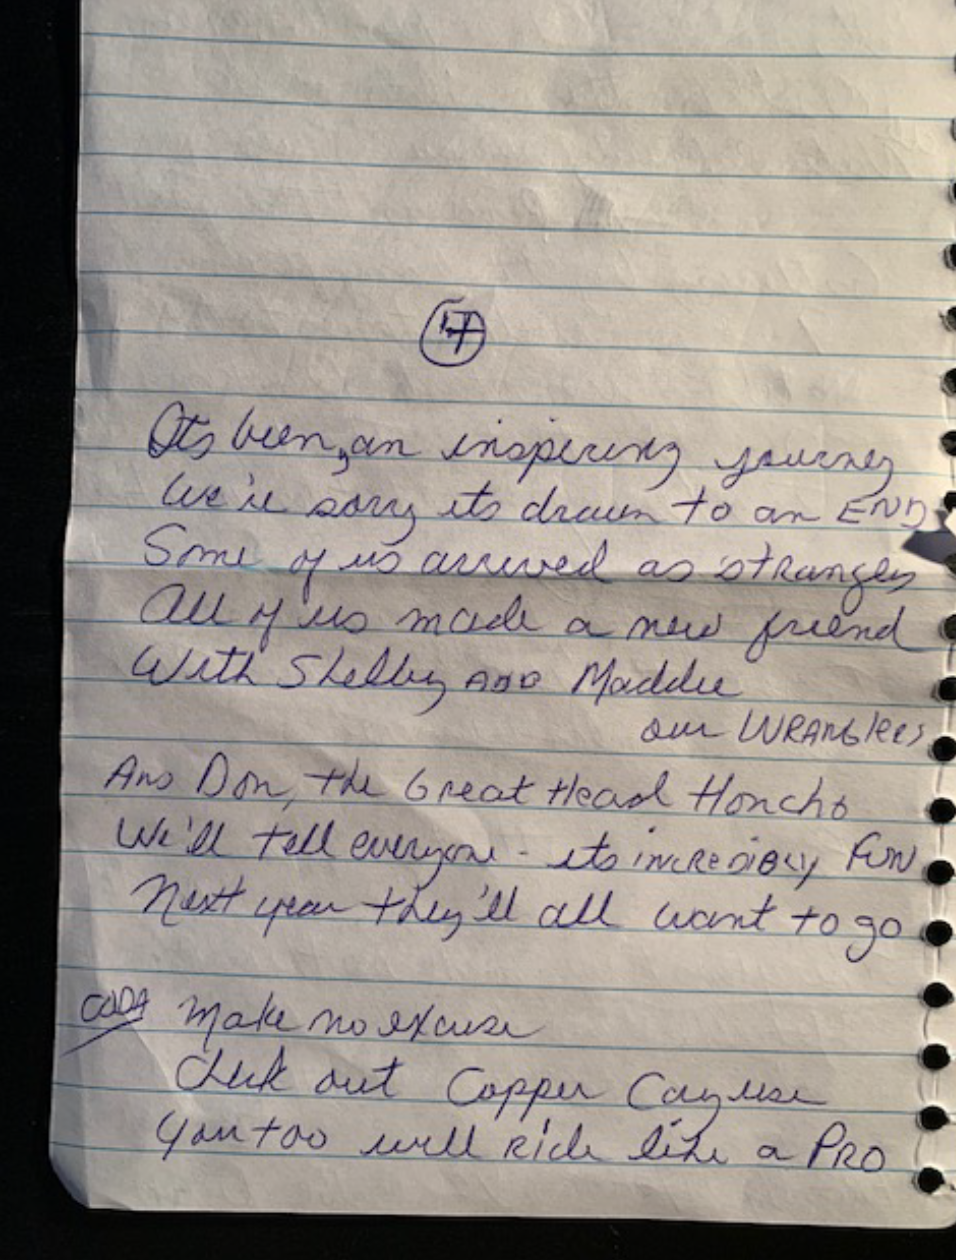 4
Its been, an inspiring journey
We're sorry its drawn to an END
Some of us arrived as strangers
All of us made a new friend
With Shelby AND Maddie
our WRANGlers
AND Don, the Great Head Honcho
We'll tell everyone - its INCREDIBLY FUN
Next year they'll all want to go
CODA Make no excuse
Check out Copper Cayuse
You too will ride like a PRO